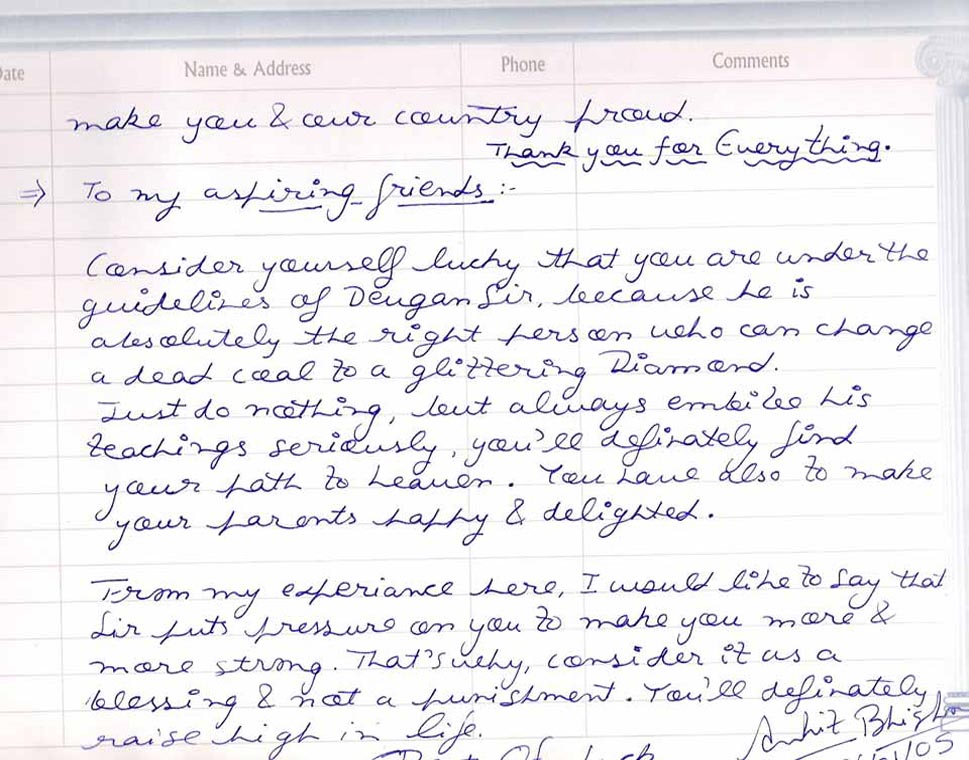 Date Name & Address Phone Comments
make you & our country proud.
Thank you for Everything.
⇒ To my aspiring friends :-
Consider yourself lucky that you are under the
guidelines of Deugan Sir, because he is
absolutely the right person who can change
a dead coal to a glittering Diamond.
Just do nothing, but always embibe his
teachings seriously, you'll definately find
your path to heaven. You have also to make
your parents happy & delighted.
From my experiance here, I would like to say that
Sir puts pressure on you to make you more &
more strong. That's why, consider it as a
blessing & not a punishment. You'll definately
raise high in life.